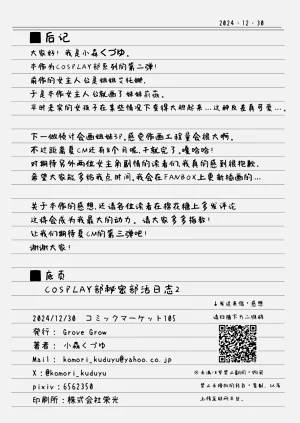 2024・12・30
■后记
大家好!我是小森くづゆ。
本作为COSPLAY部系列的第二弹!
前作的女主人公是姐姐艾托娜,
于是本作女主人公就画了妹妹莉薇。
平时老实的女孩子在某些情况下变得大胆起来…这种反差真可爱…。
下一做预计会画姐妹3P,感觉作画工程量会很大啊。
不过距离夏CM还有8个月呢,干就完了,嘎哈哈!
对期待另外两位女主角剧情的读者们,我真的感到很抱歉,
希望大家能多给我点时间。我会在FANBOX上更新插画的…
关于本作的感想,还请各位读者在棉花糖上多写评论
这将会成为我最大的动力。请大家多多指教!
让我们期待夏CM的第三弹吧!
谢谢大家!
■底页
COSPLAY部秘密部活日志2
2024/12/30 コミックマーケット105
発行: Grove Grow
著者: 小森くづゆ
Mail: komori_kuduyu@yahoo.co.jp
X:@komori_kuduyu
pixiv:6562350
印刷所:株式会社栄光
↓发送表情・感想
请扫描下方二维码
※未满18岁禁止翻阅・购买
禁止未授权的转自・复制、以及
上传互联网平台。